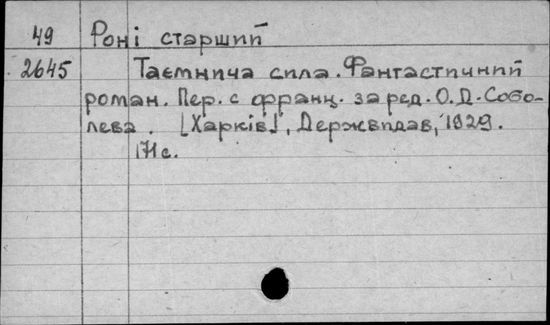 49 Роні старший
2645 Таємнича сила. Фантастичний
роман. Пер. с франц. за ред. О.Д. Собо-
лева. [Харків], Держвидав, 1929.
171 с.